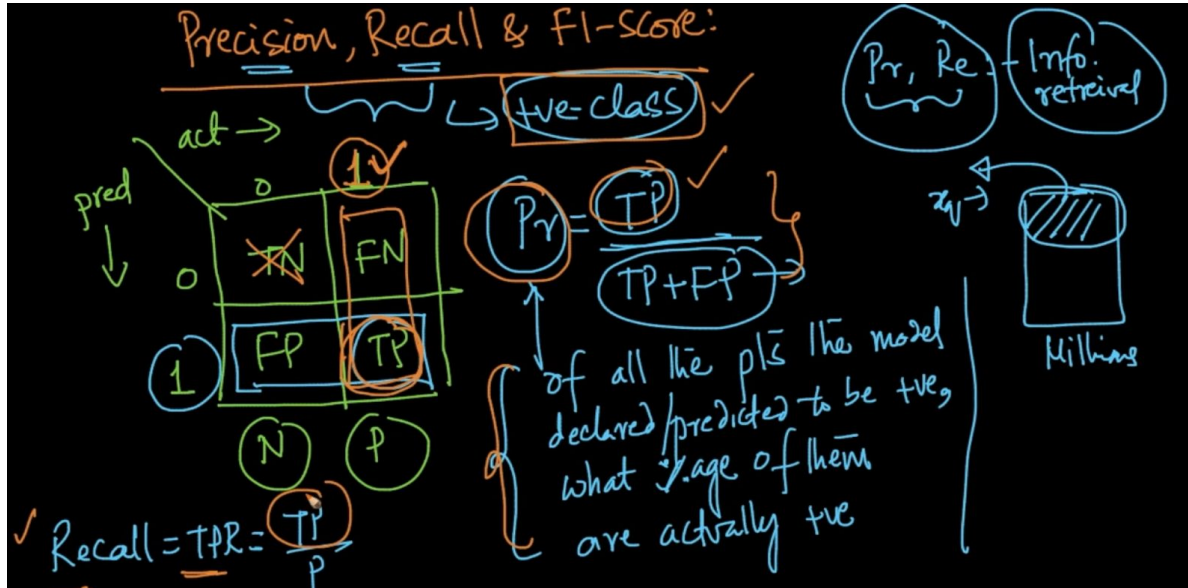 Precision, Recall & F1-Score:
+ve-class
Pr, Re - Info.
retreival
act →
pred
0 1
0 TN FN
1 FP TP
N P
Pr = TP
TP+FP
xq →
Millions
of all the pts the model
declared/predicted to be +ve,
what %age of them
are actually +ve
Recall = TPR = TP
P